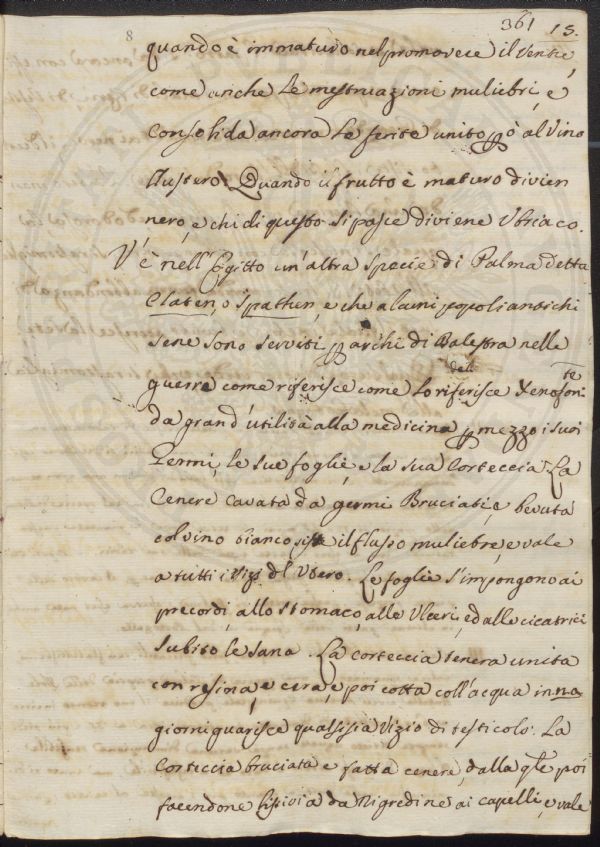 361 15.
8
quando è immaturo nel promovere il Ventre,
come anche le mestruazioni muliebri, e
Consolida ancora le ferite unito però al Vino
Austero. Quando il frutto è maturo divien
nero, e chi di questo si pasce diviene Ubriaco.
V'è nell'Egitto un'altra specie di Palma detta
Elaten, o Spathen, e che alcuni popoli antichi
se ne sono serviti per archi di Balestra nelle
guerre come riferisce come lo riferisce Xenofonte
da grand'utilità alla medicina per mezzo i suoi
Germi, le sue foglie, e la sua Corteccia. La
Cenere cavata da germi Bruciati, e bevuta
col vino bianco siste il flusso muliebre, e vale
a tutti i Vizi dl Utero. Le foglie s'impongono ai
precordi, allo stomaco, alle Ulceri, ed alle cicatrici
subito le sana. La corteccia tenera unita
con resina, e cera, e poi cotta coll'acqua in
giorni guarisce qualsisia Vizio di testicolo. La
Corteccia bruciata e fatta cenere, dalla qle poi
facendone lisivia da Nigredine ai capelli, e vale